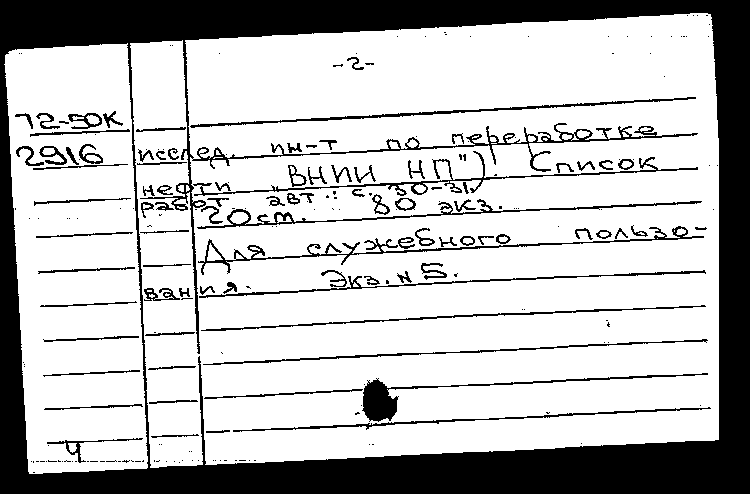 -2-
72-50К
2916 исслед. ин-т по переработке
нефти "ВНИИ НП")! Список
работ авт.: с. 30-31.
20 см. 80 экз.
Для служебного пользо-
вания. Экз. № 5.
4